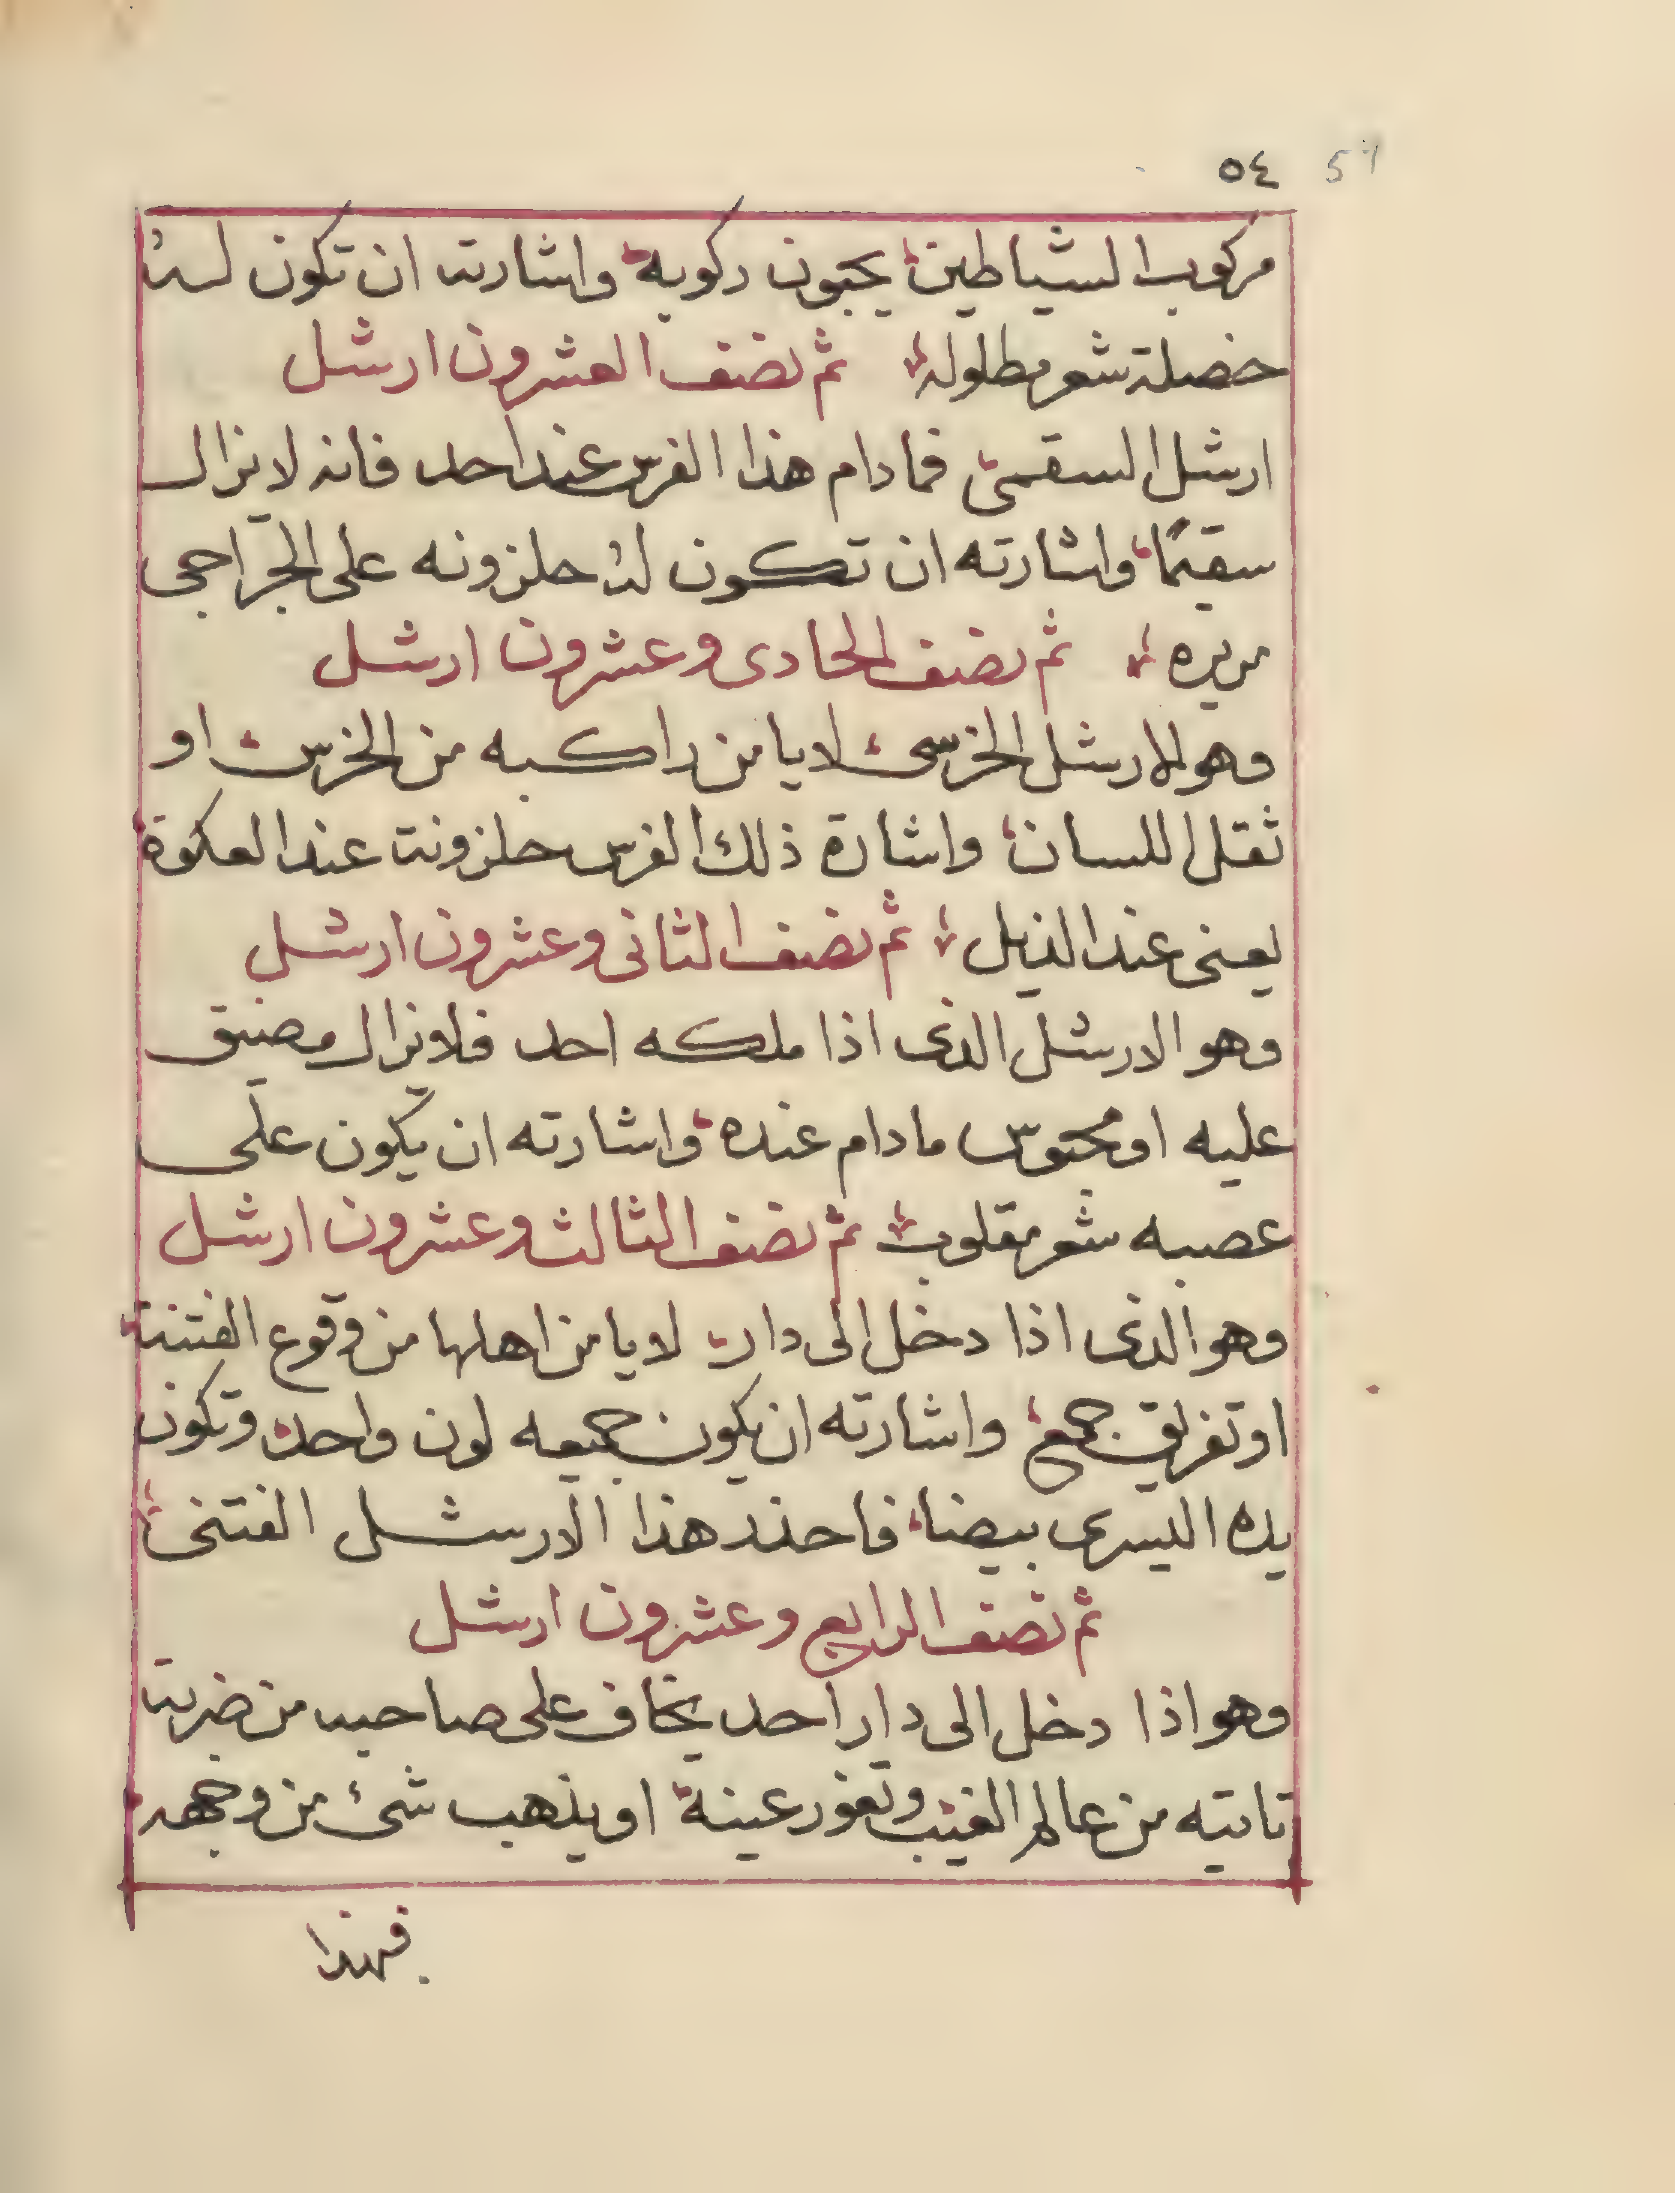 ٥٤ 54
مركوب الشياطين يحبون ركوبه واشارته ان تكون له
خضلة شعر مطلوله ثم نصف العشرون ارشل
ارشل السقمى فمادام هذا الفرس عند احد فانه لا يزال
سقيمًا واشارته ان تكون له حلزونه على الجراحى
مريره ثم نصف الحادى وعشرون ارشل
وهو الارشل الخرسى لا يامن راكبه من الخرس او
ثقل اللسان واشارة ذلك الفرس حلزونة عند العكوة
يعنى عند الذيل ثم نصف الثانى وعشرون ارشل
وهو الارشل الذى اذا ملكه احد فلا يزال مضيق
عليه او محبوس مادام عنده واشارته ان يكون على
عصبه شعر مقلوب ثم نصف الثالث وعشرون ارشل
وهو الذى اذا دخل الى دار لا يامن اهلها من وقوع الفتنة
او تفريق جمع واشارته ان يكون جميعه لون واحد وتكون
يده اليسرى بيضا فاحذر هذا الارشل الفتنى
ثم نصف الرابع وعشرون ارشل
وهو اذا دخل الى دار احد يخاف على صاحبه من ضربة
تاتيه من عالم الغيب وتغور عينة او يذهب شئ من وجهه
فهذا